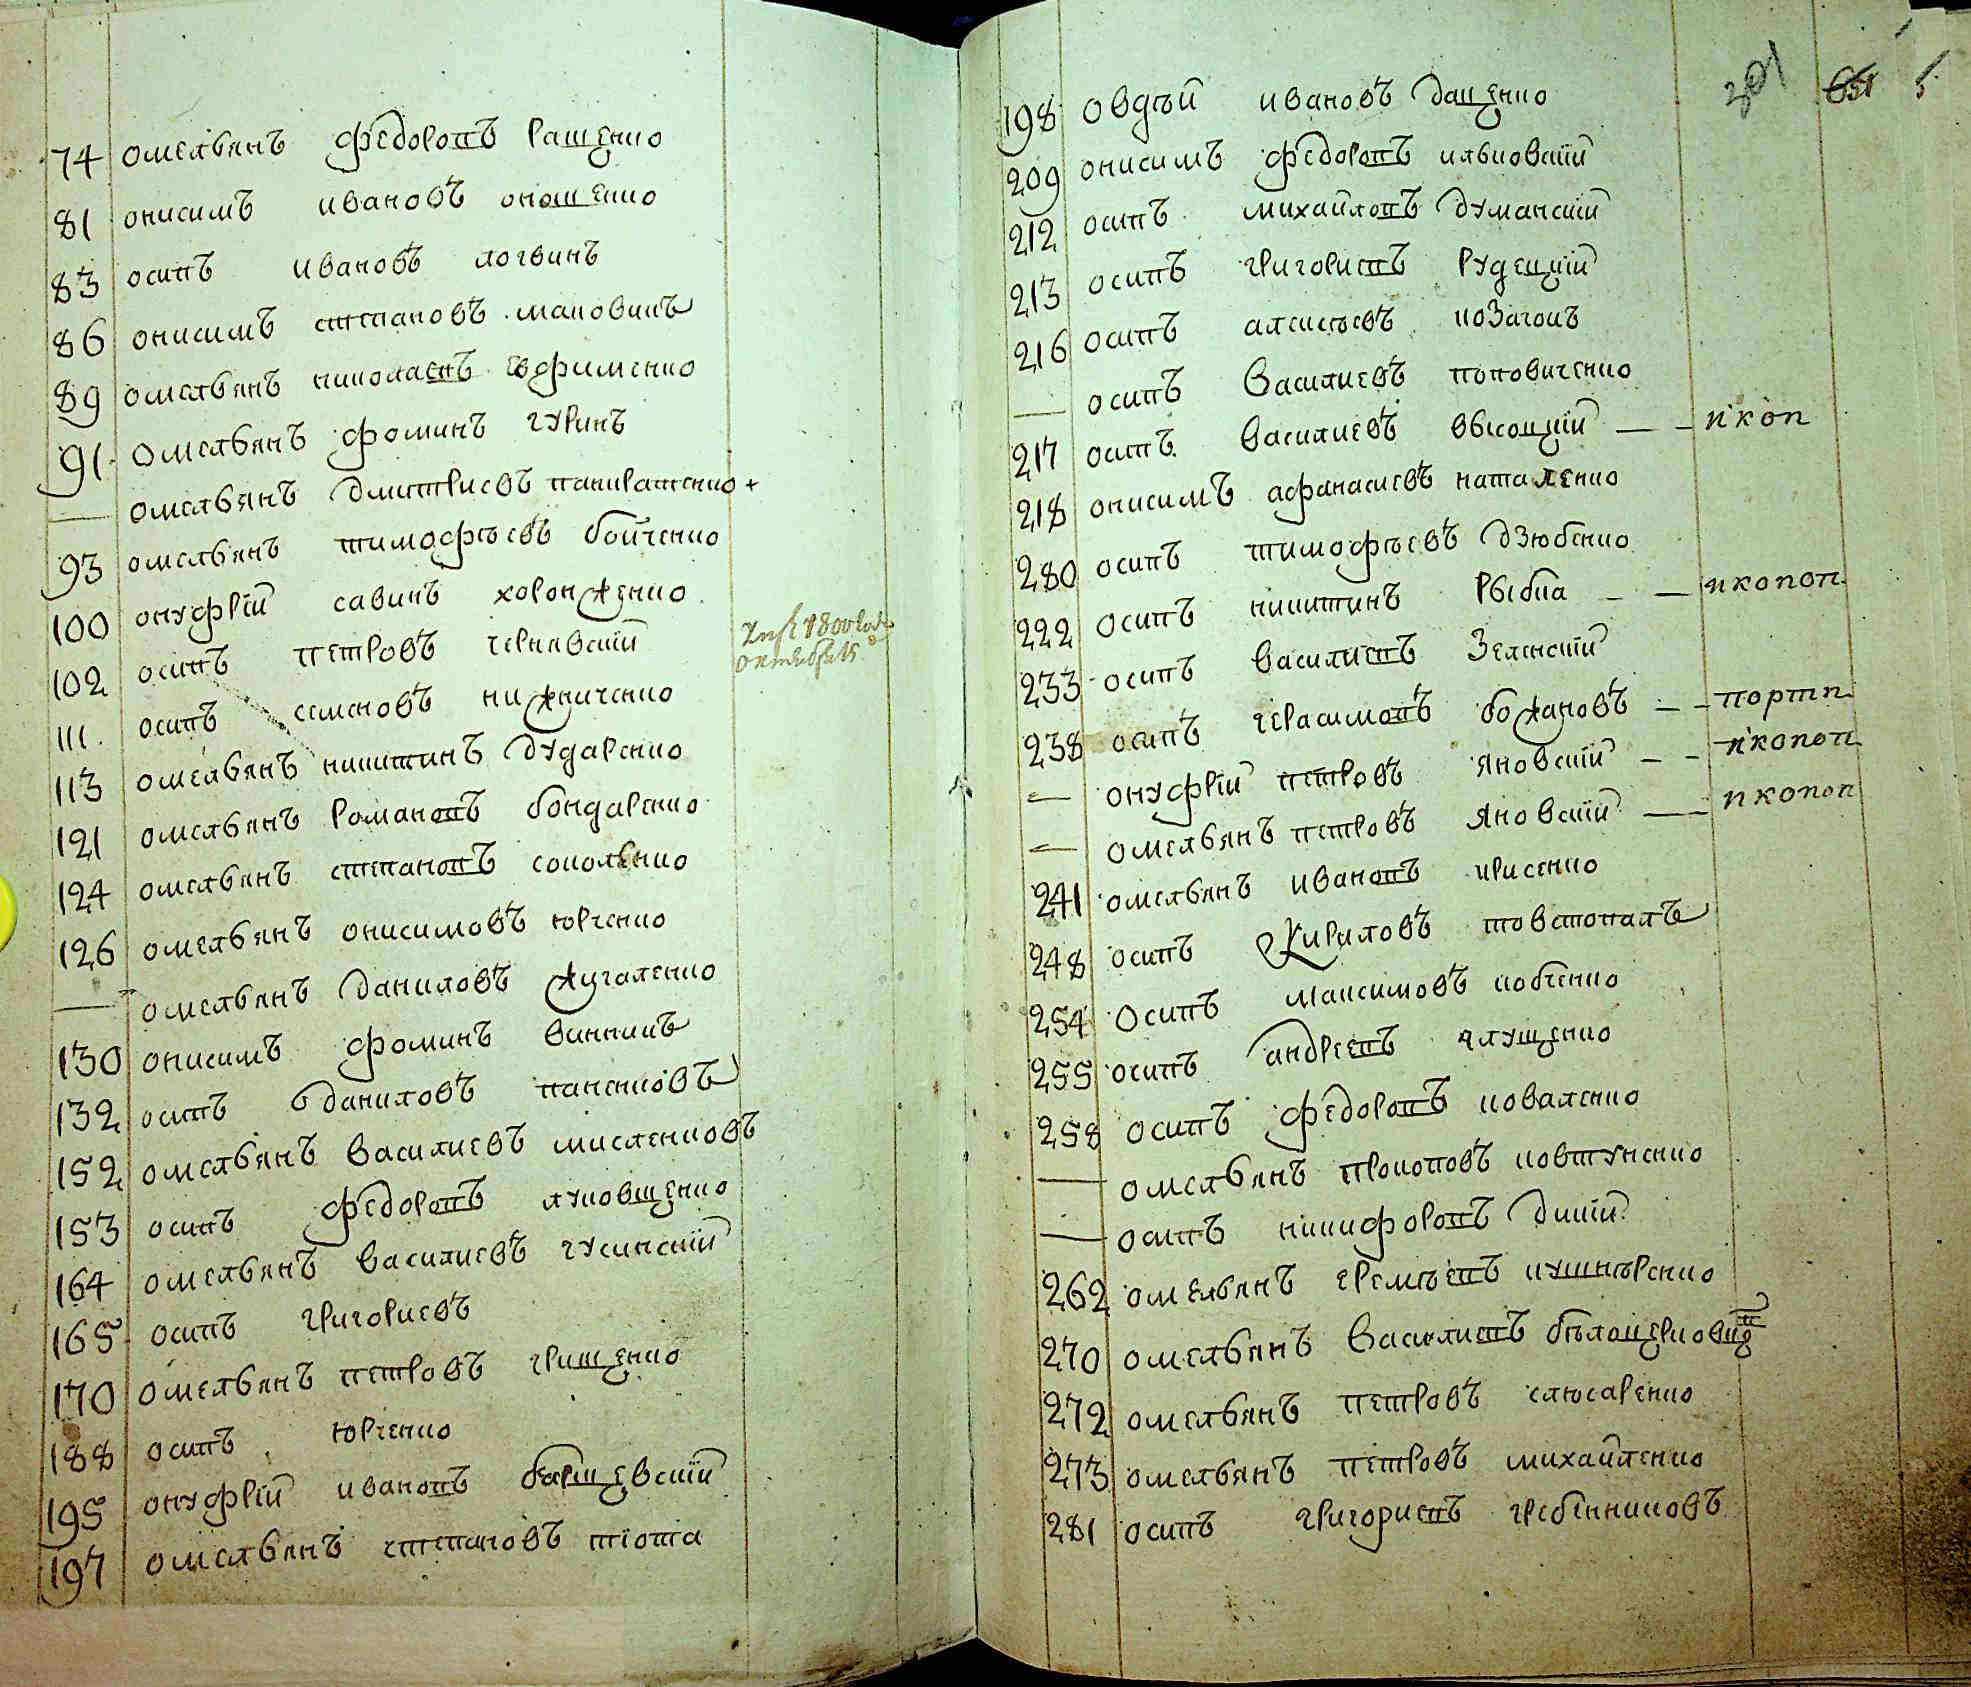 74 омелѣянъ федоровъ ращенко
81 онисимъ ивановъ оношенко
83 осипъ ивановъ логвинъ
86 онисимъ степановъ маковикъ
89 омелѣянъ николаевъ ефименко
91 омелѣянъ фоминъ гуринъ
— омелѣянъ дмитриевъ панкратенко +
93 омелѣянъ тимофѣевъ бойченко
100 онуфрій савинъ хоронженко
102 осипъ петровъ чернявскій
111 осипъ семеновъ нижниченко
113 омелѣянъ никитинъ дударенко
121 омелѣянъ романовъ бондаренко
124 омелѣянъ степановъ соколенко
126 омелѣянъ онисимовъ юрченко
— омелѣянъ даниловъ жугаленко
130 онисимъ фоминъ винникъ
132 осипъ даниловъ паненковъ
152 омелѣянъ василиевъ мисленковъ
153 осипъ федоровъ луковщенко
164 омелѣянъ василиевъ гусинскій
165 осипъ григориевъ
170 омелѣянъ петровъ грищенко
188 осипъ юрченко
195 онуфрій ивановъ барщевскій
197 омелѣянъ степановъ тіота
301
198 овдѣй ивановъ дащенко
209 онисимъ федоровъ илѣковскій
212 осипъ михайловъ думанскій
213 осипъ григориевъ рудецкій
216 осипъ алексѣевъ козачокъ
— осипъ василиевъ поповиченко
217 осипъ василиевъ високцкій — — п коп
218 онисимъ афанасиевъ наталенко
280 осипъ тимофѣевъ дзюбенко
222 осипъ никитинъ рыбка — — п копоп
233 осипъ василиевъ зеленскій
238 осипъ герасимовъ божановъ — — портп
— онуфрій петровъ яновскій — — п копоп
— омелѣянъ петровъ яновскій — — п копоп
241 омелѣянъ ивановъ крисенко
248 осипъ кириловъ товстопалъ
254 осипъ максимовъ кобченко
255 осипъ андреевъ глущенко
258 осипъ федоровъ коваленко
— омелѣянъ прокоповъ ковтуненко
— осипъ никифоровъ дикій
262 омелѣянъ еремѣевъ кушнѣренко
270 омелѣянъ василиевъ бѣлоцерковид
272 омелѣянъ петровъ слюсаренко
273 омелѣянъ петровъ михайленко
281 осипъ григориевъ гребенниковъ